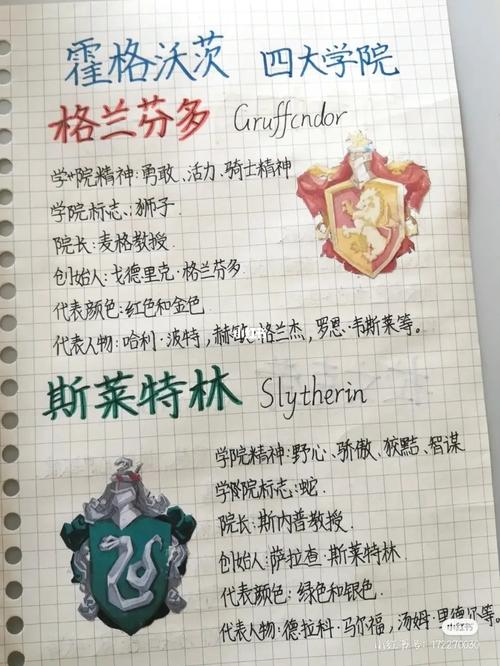 霍格沃茨 四大学院
格兰芬多 Gruffcndor
学院精神:勇敢、活力、骑士精神
学院标志:狮子
院长:麦格教授
创始人:戈德里克·格兰芬多
代表颜色:红色和金色
代表人物:哈利·波特,赫敏·格兰杰,罗恩·韦斯莱等。
小红书
斯莱特林 Slytherin
学院精神:野心、骄傲、狡黠、智谋
学院标志:蛇
院长:斯内普教授
创始人:萨拉查·斯莱特林
代表颜色:绿色和银色
代表人物:德拉科·马尔福,汤姆·里德尔等。
小红书
小红书号:172270030